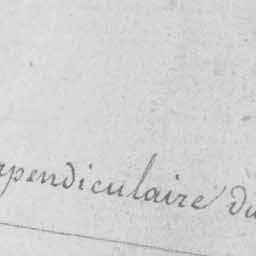 rpendiculaire du